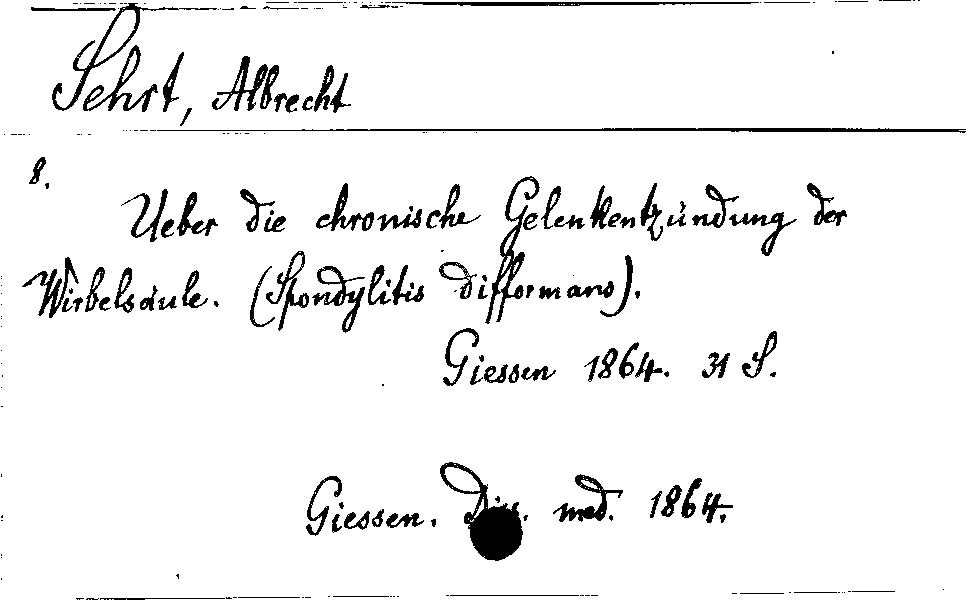 Sehrt, Albrecht
8.
Ueber die chronische Gelenkentzündung der
Wirbelsäule. (Spondylitis difformans).
Giessen 1864. 31 S.
Giessen. Diss. med. 1864.